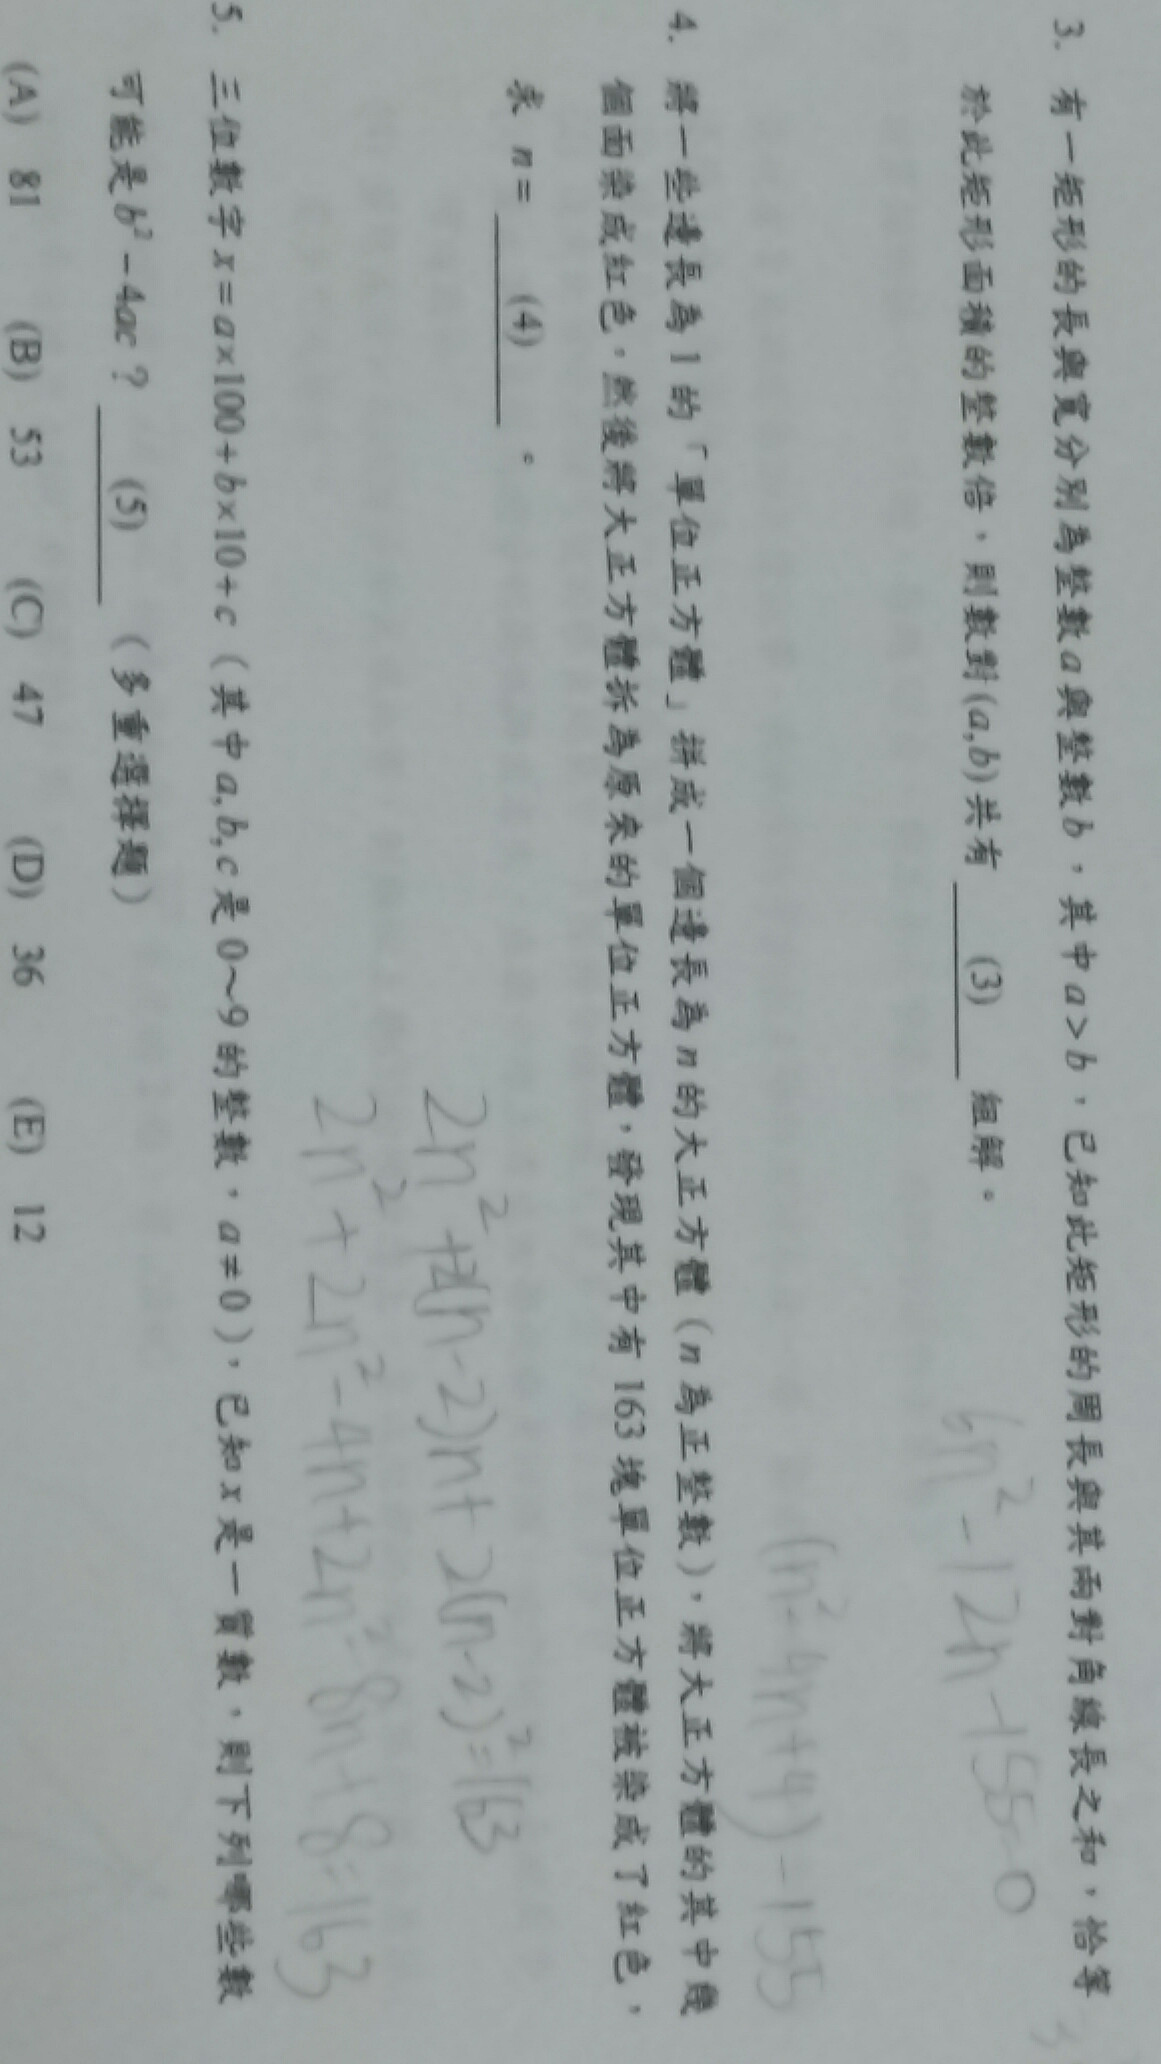 3. 有一矩形的長與寬分別為整數a與整數b，其中a>b，已知此矩形的周長與其兩對角線長之和，恰等
於此矩形面積的整數倍，則數對(a,b)共有 (3) 組解。
6n²-12n-155=0
(n²-4n+4)-155
4. 將一些邊長為1的「單位正方體」拼成一個邊長為n的大正方體（n為正整數），將大正方體的其中幾
個面染成紅色，然後將大正方體拆為原來的單位正方體，發現其中有163塊單位正方體被染成了紅色，
求 n= (4) 。
2n²+2(n-2)n+2(n-2)²=163
2n²+2n²-4n+2n²-8n+8=163
5. 三位數字x=a×100+b×10+c（其中a,b,c是0～9的整數，a≠0），已知x是一質數，則下列哪些數
可能是b²-4ac？ (5) （多重選擇題）
(A) 81 (B) 53 (C) 47 (D) 36 (E) 12